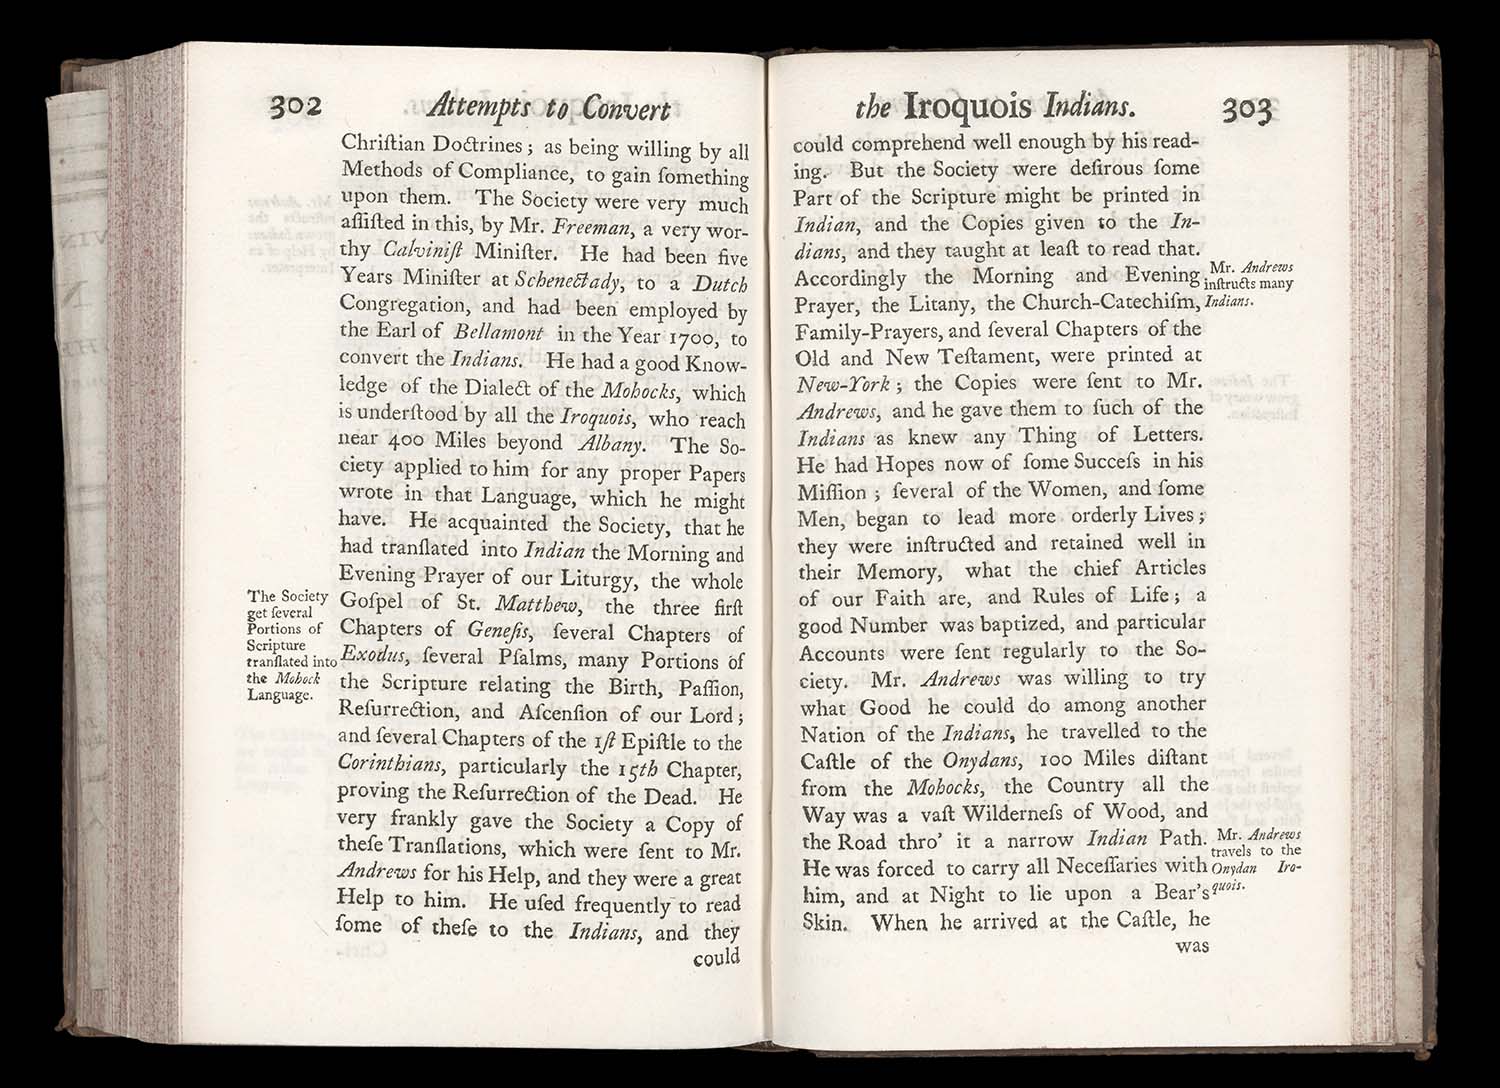 302 Attempts to Convert
Chriſtian Doctrines; as being willing by all
Methods of Compliance, to gain ſomething
upon them. The Society were very much
aſſiſted in this, by Mr. Freeman, a very wor-
thy Calviniſt Miniſter. He had been five
Years Miniſter at Schenectady, to a Dutch
Congregation, and had been employed by
the Earl of Bellamont in the Year 1700, to
convert the Indians. He had a good Know-
ledge of the Dialect of the Mohocks, which
is underſtood by all the Iroquois, who reach
near 400 Miles beyond Albany. The So-
ciety applied to him for any proper Papers
wrote in that Language, which he might
have. He acquainted the Society, that he
had tranſlated into Indian the Morning and
Evening Prayer of our Liturgy, the whole
Goſpel of St. Matthew, the three firſt
Chapters of Geneſis, ſeveral Chapters of
Exodus, ſeveral Pſalms, many Portions of
the Scripture relating the Birth, Paſſion,
Reſurrection, and Aſcenſion of our Lord;
and ſeveral Chapters of the 1ſt Epiſtle to the
Corinthians, particularly the 15th Chapter,
proving the Reſurrection of the Dead. He
very frankly gave the Society a Copy of
theſe Tranſlations, which were ſent to Mr.
Andrews for his Help, and they were a great
Help to him. He uſed frequently to read
ſome of theſe to the Indians, and they
could
The Society
get ſeveral
Portions of
Scripture
tranſlated into
the Mohock
Language.
the Iroquois Indians. 303
could comprehend well enough by his read-
ing. But the Society were deſirous ſome
Part of the Scripture might be printed in
Indian, and the Copies given to the In-
dians, and they taught at leaſt to read that.
Accordingly the Morning and Evening
Prayer, the Litany, the Church-Catechiſm,
Family-Prayers, and ſeveral Chapters of the
Old and New Teſtament, were printed at
New-York; the Copies were ſent to Mr.
Andrews, and he gave them to ſuch of the
Indians as knew any Thing of Letters.
He had Hopes now of ſome Succeſs in his
Miſſion; ſeveral of the Women, and ſome
Men, began to lead more orderly Lives;
they were inſtructed and retained well in
their Memory, what the chief Articles
of our Faith are, and Rules of Life; a
good Number was baptized, and particular
Accounts were ſent regularly to the So-
ciety. Mr. Andrews was willing to try
what Good he could do among another
Nation of the Indians, he travelled to the
Caſtle of the Onydans, 100 Miles diſtant
from the Mohocks, the Country all the
Way was a vaſt Wilderneſs of Wood, and
the Road thro' it a narrow Indian Path.
He was forced to carry all Neceſſaries with
him, and at Night to lie upon a Bear's
Skin. When he arrived at the Caſtle, he
was
Mr. Andrews
inſtructs many
Indians.
Mr. Andrews
travels to the
Onydan Iro-
quois.